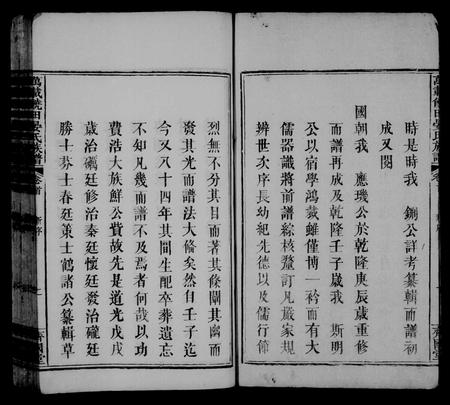 時是時我 鍘公詳考纂輯而譜初
成又閱
國朝我 應璣公於乾隆庚辰歲重修
而譜再成及乾隆壬子歲我 斯明
公以宿學鴻裁雖僅博一衿而有大
儒器識將前譜綜核釐訂凡嚴家規
辨世次序長幼紀先德以及儒行節
烈無不分其目而著其條闡其幽而
發其光而譜法大脩矣然自壬子迄
今又八十四年其間生配卒葬遺忘
不知凡幾而譜不及焉者何哉以功
費浩大族鮮公貲故先是道光戊戌
歲治礪廷修治秦廷懷廷發治礲廷
勝士芬士春廷策士鶴諸公纂輯草